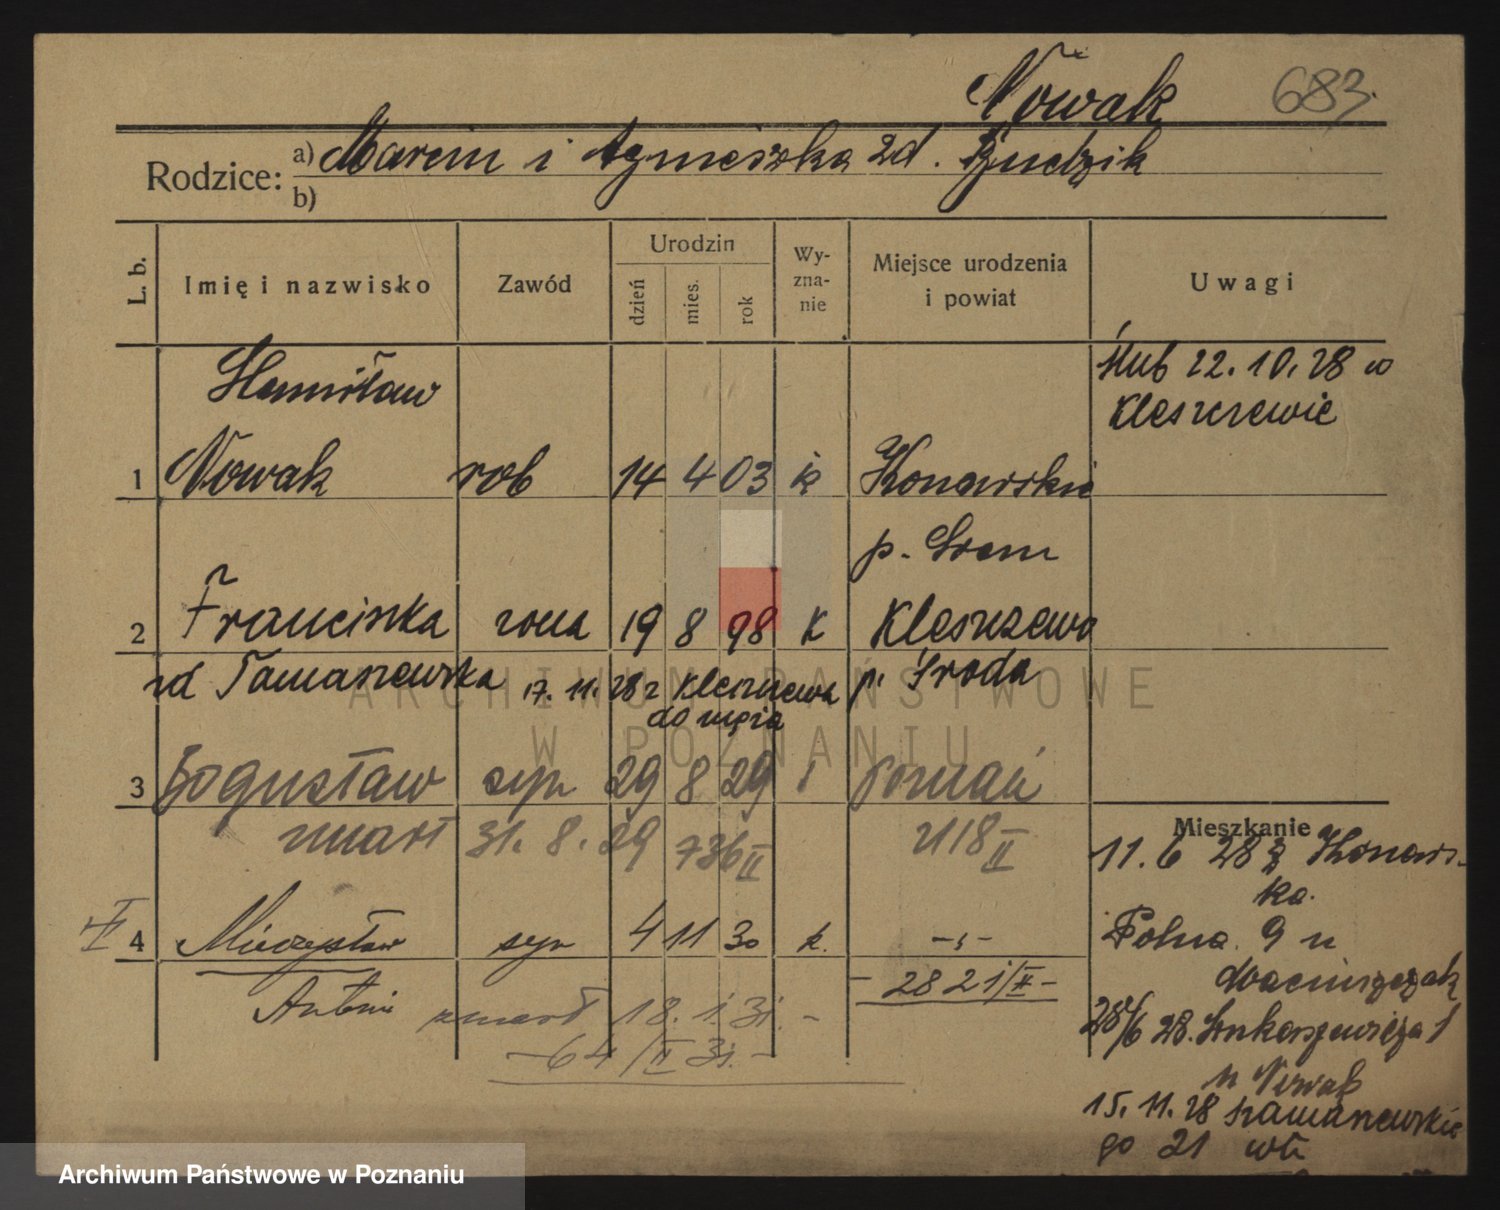 Nowak 683.
Rodzice: a) Marcin i Agnieszka zd.
b)
L. b. Imię i nazwisko Zawód Urodzin dzień mies. rok Wy-zna-nie Miejsce urodzenia i powiat Uwagi
Stanisław Ślub 22. 10. 28 w
Kleszczewie
1 Nowak rob 14 4 03 k Konarskie
p. Śrem
2 Franciszka żona 19 8 98 k Kleszczewo
zd Tomaszewska 17. 11. 28 z Kleszczewa p. Środa
do męża
3 Bogusław syn 29 8 29 Poznań
zmarł 31. 8. 29 736 II 2118 II
Mieszkanie
11. 6 28 z Konars-
ka.
4 Mieczysław syn 4 11 30 k. - „ -
Polna 9 u
Antoni - 2821/II -
zmarł 18. 1. 31. -
28/6 28. Łukaszewicza 1
- 64/II 31. -
u Nowak
15. 11. 28
go 21 wł.
ARCHIWUM PAŃSTWOWE
W POZNANIU
Archiwum Państwowe w Poznaniu